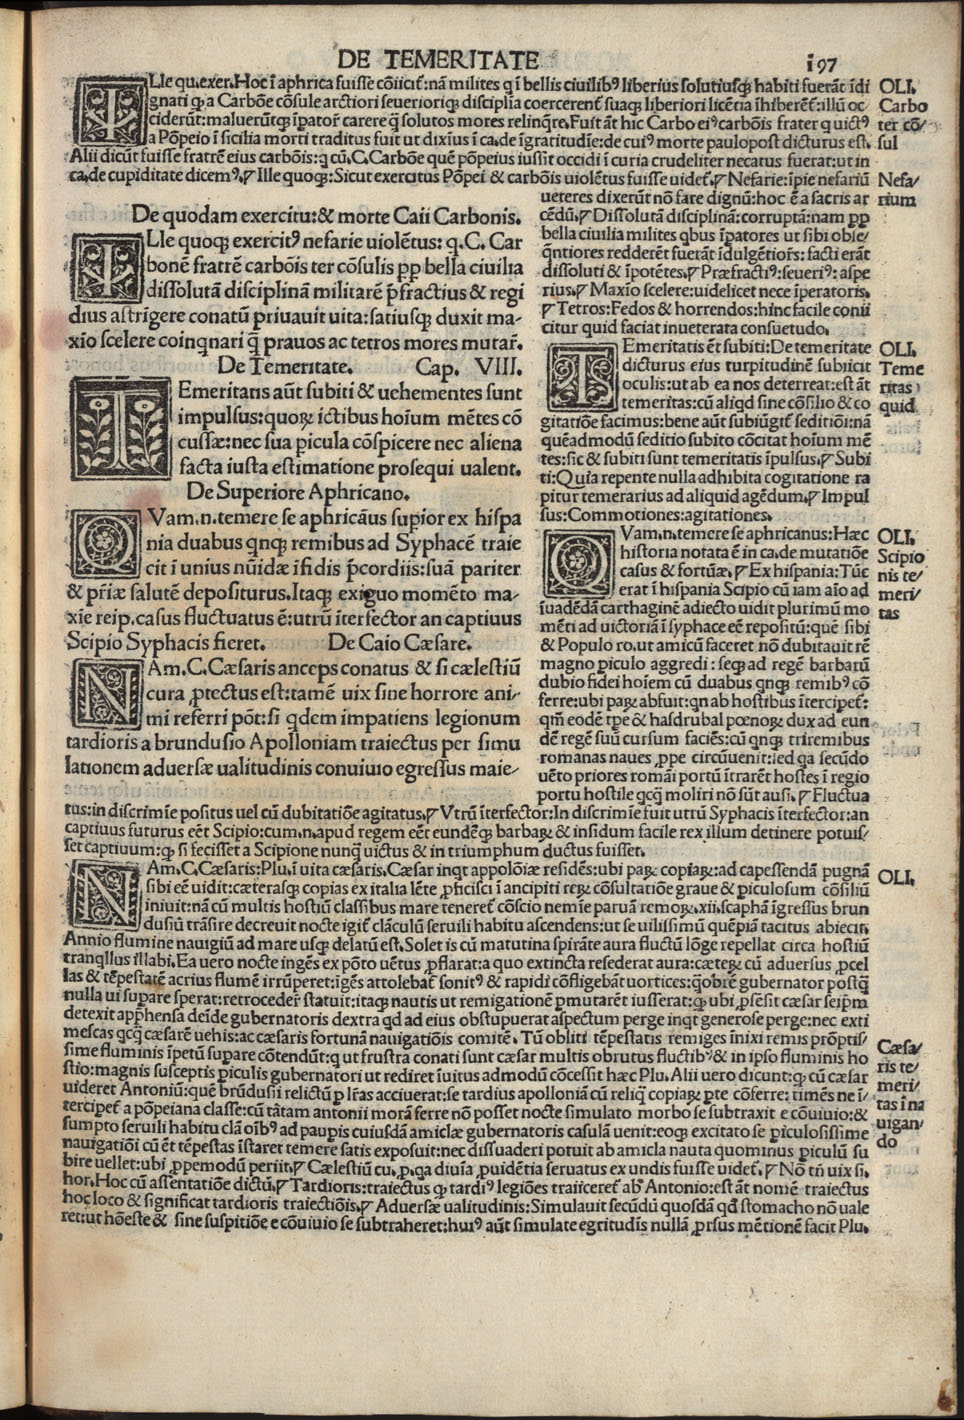 DE TEMERITATE
ī97
ILle qu.exer.Hoc ī aphrica fuisse cōiicit̄:nā milites q̄ ī bellis ciuilibꝰ liberius solutiusqꝫ habiti fuerāt īdi
gnati qꝫ a Carbōe cōsule arctiori seueriorīqꝫ disciplīa coercerent̄ suaqꝫ liberiori licētia īhiberēt̄:illū oc
ciderūt:maluerūtqꝫ īpator̄ carere q̄ solutos mores relinq̄re.Fuit āt hic Carbo eiꝰ carbōis frater q uictꝰ
a Pōpeio ī sicilia morti traditus fuit ut dixiꝰ ī ca.de īgratitudīe:de cuiꝰ morte paulopost dicturus est.
Alii dicūt fuisse fratrē eius carbōis:q cū.C.Carbōe quē pōpeius iussit occidi ī curia crudeliter necatus fuerat:ut in
ca.de cupiditate dicemꝰ.Ille quoqꝫ:Sicut exercitus Pōpei & carbōis uiolētus fuisse uidet̄.Nefarie:īpie nefariū
OLI.
Carbo
ter cō/
sul
Nefa/
rium
De quodam exercitu:& morte Caii Carbonis.
ILle quoqꝫ exercitꝰ nefarie uiolētus: q.C. Car
bonē fratrē carbōis ter cōsulis pp bella ciuilia
dissolutā disciplinā militarē p̄fractius & regi
dius astrigere conatū priuauit uita:satiusqꝫ duxit ma/
xio scelere coinqnari q̄ prauos ac tetros mores mutar̄.
De Temeritate. Cap. VIII.
TEmeritatis aūt subiti & uehementes sunt
impulsus:quoꝝ ictibus hoīum mētes cō
cussæ:nec sua picula cōspicere nec aliena
facta iusta estimatione prosequi ualent.
De Superiore Aphricano.
QVam.n.temere se aphricāus supior ex hispa
nia duabus qnqꝫ remibus ad Syphacē traie
cit ī unius nūidæ īfidis p̄cordiis:suā pariter
& pr̄iæ salutē depositurus.Itaqꝫ exiguo momēto ma/
xīe reip.casus fluctuatus ē:utrū īterfector an captiuus
Scipio Syphacis fieret. De Caio Cæsare.
NAm.C.Cæsaris anceps conatus & si cælestiū
cura ꝓtectus est:tamē uix sine horrore ani/
mi referri pōt:si qdem impatiens legionum
tardioris a brundusio Apolloniam traiectus per simu
lationem aduersæ ualitudinis conuiuio egressus maie/
ueteres dixerūt nō fare dignū:hoc ē a sacris ar
cēdū.Dissolutā disciplinā:corruptā:nam pp
bella ciuilia milites qbus īpatores ut sibi obse/
q̄ntiores redderēt̄ fuerāt īdulgētiors:facti erāt
dissoluti & īpotētes.Præfractiꝰ:seueriꝰ:aspe
rius.Maxīo scelere:uidelicet nece īperatoris.
Tetros:Fedos & horrendos:hinc facile conii
citur quid faciat inueterata consuetudo.
TEmeritatis ēt subiti:De temeritate
dicturus eius turpitudinē subiicit
oculis:ut ab ea nos deterreat:est āt
temeritas:cū aliqd sine cōsilio & co
gitatiōe facimus:bene aūt subiūgit̄ seditiōi:nā
quēadmodū seditio subito cōcitat hoīum mē
tes:sic & subiti sunt temeritatis īpulsus.Subi
ti:Quia repente nulla adhibita cogitatione ra
pitur temerarius ad aliquid agēdum.Impul
sus:Commotiones:agitationes.
OLI.
Teme
ritas
quid
QVam.n.temere se aphricanus:Hæc
historia notata ē in ca.de mutatiōe
casus & fortūæ.Ex hispania:Tūc
erat ī hispania Scipio cū iam aīo ad
īuadēdā carthaginē adiecto uidit plurimū mo
mēti ad uictoriā ī syphace eē repositū:quē sibi
& Populo ro.ut amicū faceret nō dubitauit rē
magno piculo aggredi : seqꝫ ad regē barbarū
dubio fidei hoīem cū duabus qnqꝫ remibꝰ cō
ferre:ubi paꝝ abfuit:qn ab hostibus ītercipet̄:
qm̄ eodē tp̄e & hasdrubal pœnoꝝ dux ad eun
dē regē suū cursum faciēs:cū qnqꝫ triremibus
romanas naues ꝓpe circūuenit:sed qa secūdo
uēto priores romāi portū ītrarēt hostes ī regio
portu hostile qcq̄ moliri nō sūt ausi.Fluctua
OLI.
Scipio
nis te/
meri/
tas
tus:in discrimīe positus uel cū dubitatiōe agitatus.Vtrū īterfector:In discrimīe fuit utrū Syphacis īterfector:an
captiuus futurus eēt Scipio:cum.n.apud regem eēt eundēqꝫ barbaꝝ & infidum facile rex illum detinere potuis/
set captiuum:qꝫ si fecisset a Scipione nunq̄ uictus & in triumphum ductus fuisset.
NAm.C.Cæsaris:Plu.ī uita cæsaris.Cæsar inqt appolōiæ residēs:ubi paꝝ copiaꝝ:ad capessendā pugnā
sibi eē uidit:cæterasqꝫ copias ex italia lēte ꝓficisci ī ancipiti reꝝ cōsultatiōe graue & piculosum cōsiliū
iniuit:nā cū multis hostiū classibus mare teneret̄ cōscio nemīe paruā remoꝝ.xii.scaphā īgressus brun
dusiū trāsire decreuit nocte igit̄ clāculū seruili habitu ascendens:ut se uilissimū quēpiā tacitus abiecit.
Annio flumine nauigiū ad mare usqꝫ delatū est.Solet is cū matutina spirāte aura fluctū lōge repellat circa hostiū
tranqllus illabi.Ea uero nocte ingēs ex pōto uētus ꝓflarat:a quo extincta resederat aura:cæteꝝ cū aduersus ꝓcel
las & tēpestatē acrius flumē irrūperet:īgēs attolebat̄ sonitꝰ & rapidi cōfligebāt̄ uortices:qꝫobrē gubernator postq̄
nulla ui supare sperat:retroceder̄ statuit:itaqꝫ nautis ut remigationē pmutarēt iusserat:qꝫ ubi ꝓsēsit cæsar seipm̄
detexit apphensa deīde gubernatoris dextra qd ad eius obstupuerat aspectum perge inqt generose perge:nec exti
mescas qcq̄ cæsarē uehis:ac cæsaris fortunā nauigatiōis comitē.Tū obliti tēpestatis remiges īnixi remis prōptis/
sime fluminis īpetū supare cōtendūt:q ut frustra conati sunt cæsar multis obrutus fluctibꝰ & in ipso fluminis ho
stio:magnis susceptis piculis gubernatori ut rediret īuitus admodū cōcessit hæc Plu.Alii uero dicunt:qꝫ cū cæsar
uideret Antoniū:quē brūdusii relictū p lr̄as acciuerat:se tardius apolloniā cū reliq̄ copiaꝝ pte cōferre:timēs ne ī/
tercipet̄ a pōpeiana classe:cū tātam antonii morā ferre nō posset nocte simulato morbo se subtraxit e cōuiuio:&
sumpto seruili habitu clā oībꝰ ad paupis cuiusdā amiclæ gubernatoris casulā uenit:eoqꝫ excitato se piculosissime
nauigatiōi cū ēt tēpestas īstaret temere satis exposuit:nec dissuaderi potuit ab amicla nauta quominus piculū su
bire uellet:ubi ꝓpemodū periit.Cælestiū cu.p.qa diuīa ꝓuidētia seruatus ex undis fuisse uidet̄.Nō tn̄ uix si.
hor.Hoc cū assentatiōe dictū.Tardioris:traiectus qꝫ tardiꝰ legiōes traiiceret̄ ab Antonio:est āt nomē traiectus
hoc loco & significat tardioris traiectiōis.Aduersæ ualitudinis:Simulauit secūdū quosdā qd stomacho nō uale
ret:ut hōeste & sine suspitiōe e cōuiuio se subtraheret:huiꝰ aūt simulate egritudīs nullā ꝓrsus mētionē facit Plu.
OLI.
Cæsa/
ris te/
meri/
tas ī na
uigan/
do